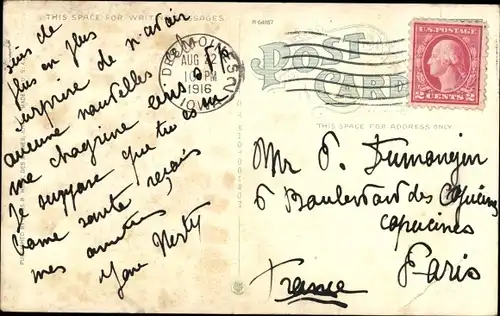 THIS SPACE FOR WRITING MESSAGES
suis de
plus en plus
surprise de n'avoir
aucune nouvelles
me chagrine
Je suppose que tu
bonne santé, reçois
mes amitiés
R-64187
DES MOINES
AUG 22
10 PM
1916
IOWA
POST CARD
U.S. POSTAGE
2 CENTS 2
THIS SPACE FOR ADDRESS ONLY
Mr
6 Boulevard des Capucines
capucines
Paris
France